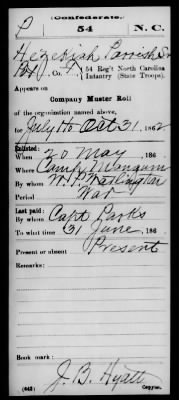 (Confederate.)
P 54 N.C.
Hezekiah Parrish Sr
Pvt, Co. 54 Reg't North Carolina
Infantry (State Troops).
Appears on
Company Muster Roll
of the organization named above,
for July & Oct 31, 1862
Enlisted:
When 20 May, 186
Where Camp Mangum
By whom W. P. Watlington
Period War
Last paid:
By whom Capt Parks
To what time 31 June, 186
Present or absent Present
Remarks:
Book mark:
J. B. Hyatt
(642) Copyist.